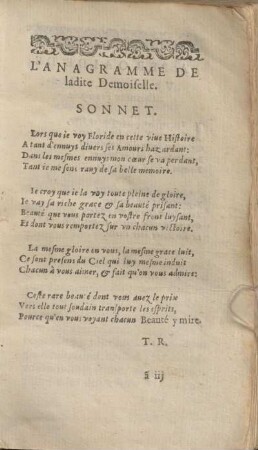 L'ANAGRAMME DE
ladite Demoiselle.
SONNET.
Lors que ie voy Floride en cette viue Histoire
A tant d'ennuys diuers ses Amours hazardant:
Dans les mesmes ennuys mon cœur se va perdant,
Tant ie me sens rauy de sa belle memoire.
Ie croy que ie la voy toute pleine de gloire,
Ie vay sa riche grace & sa beauté prisant:
Beauté que vous portez en vostre front luysant,
Et dont vous remportez sur vn chacun victoire.
La mesme gloire en vous, la mesme grace luit,
Ce sont presens du Ciel qui luy mesme induit
Chacun à vous aimer, & fait qu'on vous admire:
Ceste rare beauté dont vous auez le prix
Vers elle tout soudain transporte les esprits,
Pource qu'en vous voyant chacun Beauté y mire.
T. R.
ã iij